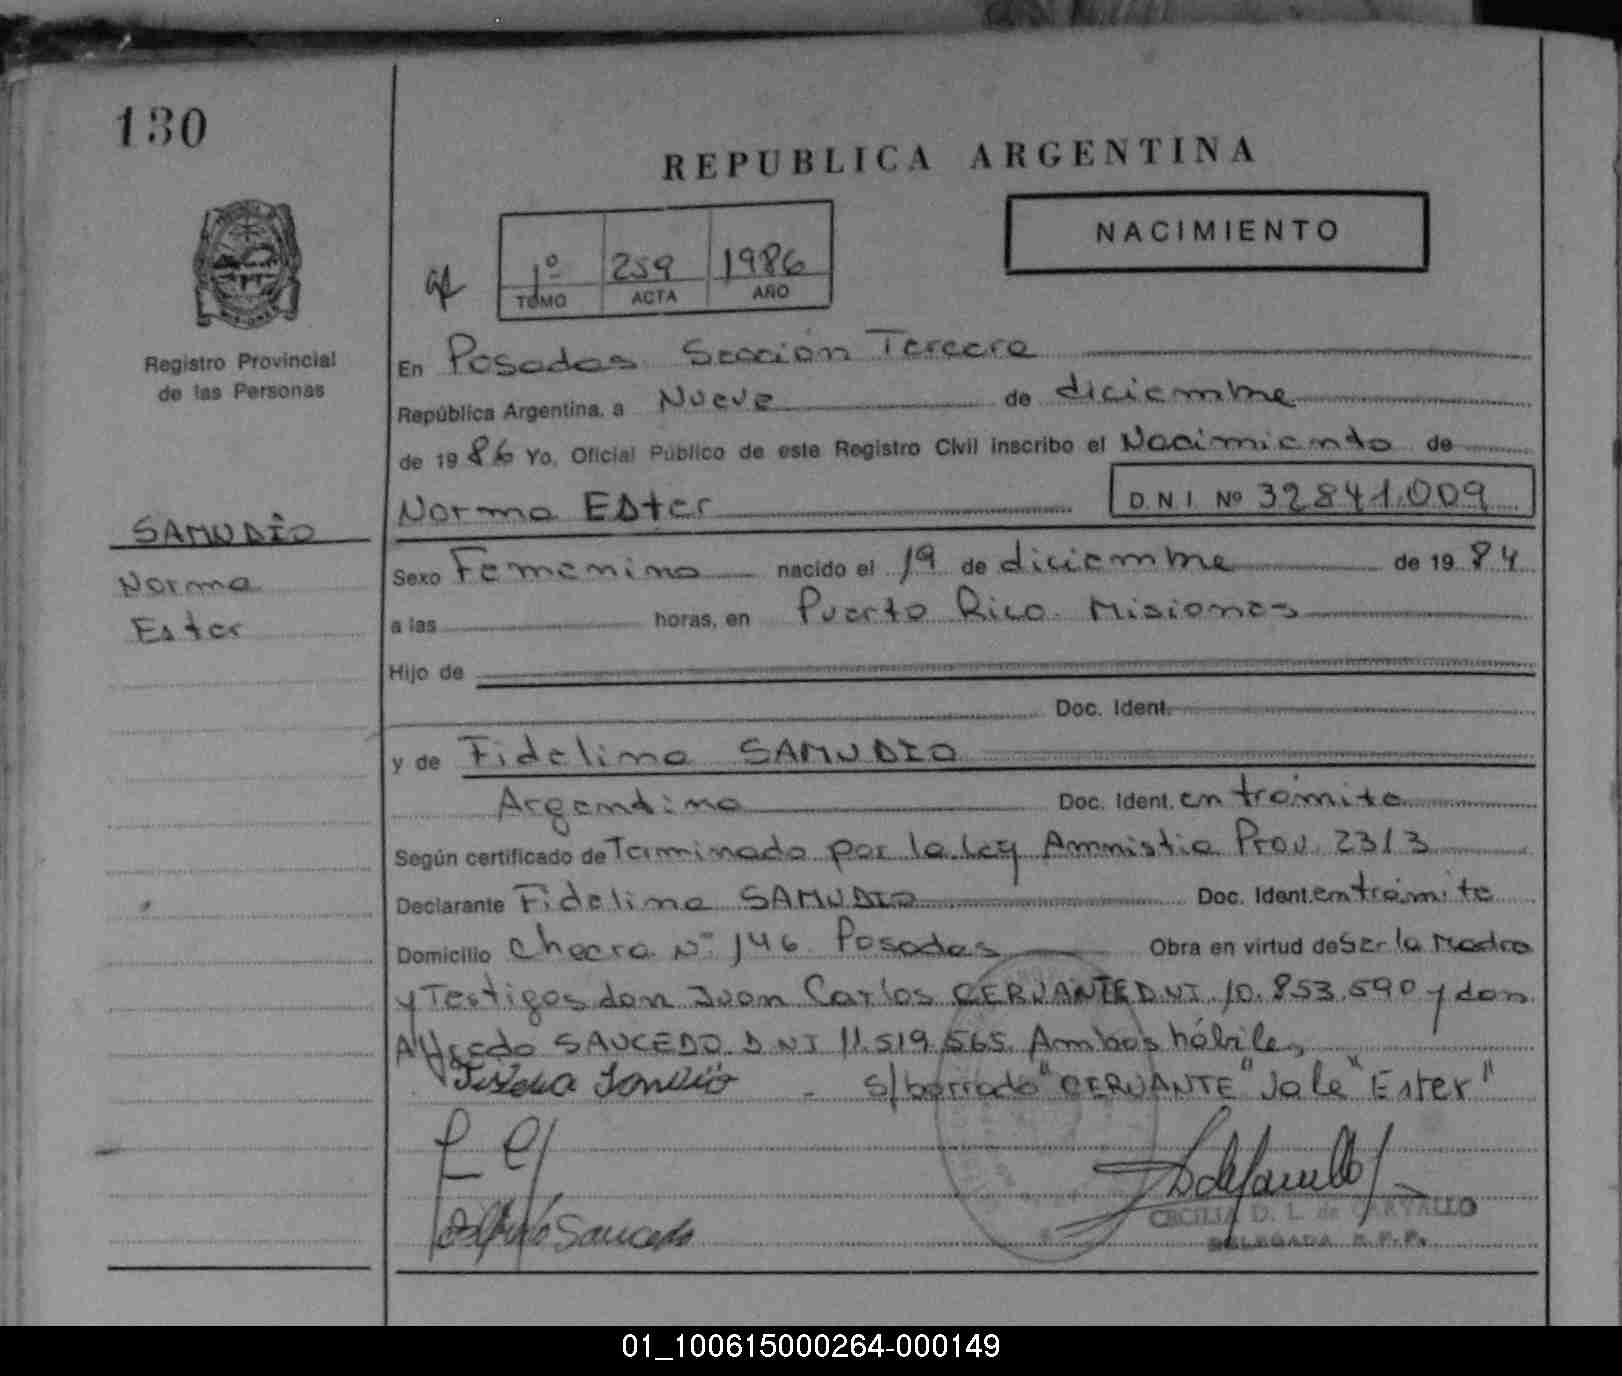 130
REPUBLICA ARGENTINA
NACIMIENTO
1º 259 1986
TOMO ACTA AÑO
Registro Provincial
de las Personas
En Posadas Sección Tercera
República Argentina, a Nueve de diciembre
de 19 86 Yo, Oficial Público de este Registro Civil inscribo el Nacimiento de
Norma Ester D.N.I. Nº 32841.009
SAMUDIO
Norma
Ester
Sexo Femenino nacido el 19 de diciembre de 19 84
a las horas, en Puerto Rico. Misiones
Hijo de
Doc. Ident.
y de Fidelina SAMUDIO
Argentina Doc. Ident. en trámite
Según certificado de Terminado por la ley Amnistia Prov. 2313
Declarante Fidelina SAMUDIO Doc. Ident. en trámite
Domicilio Chacra Nº 146 Posadas Obra en virtud de Ser la Madre
y Testigos don Juan Carlos CERVANTE D.NI. 10.853.590 y don
Alfredo SAUCEDO D.NI 11.519.565. Ambos hábiles
s/borrado "CERVANTE" Vale "Ester"
Alfredo Saucedo
CECILIA D. L. de CARVALLO
DELEGADA R.P.P.
01_100615000264-000149